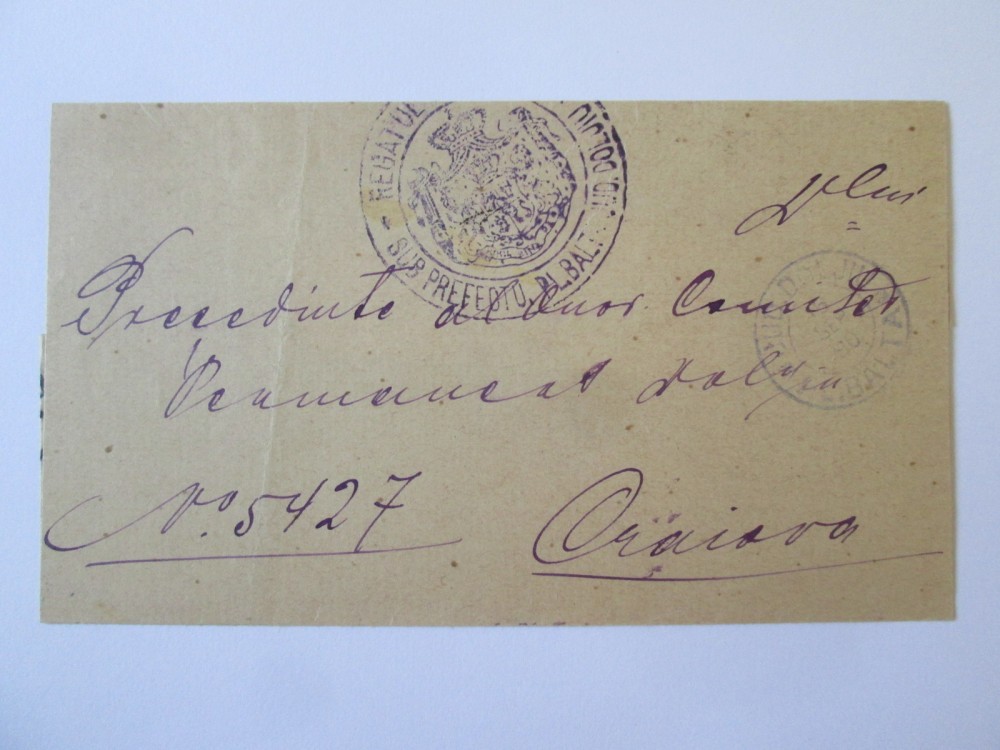 REGATUL
JUD. DOLJIU
SUB PREFECTU. PL. BALT
Dlui
Precedinte al Onor Comitet
Permanent Doljiu
No. 5427
Craiova